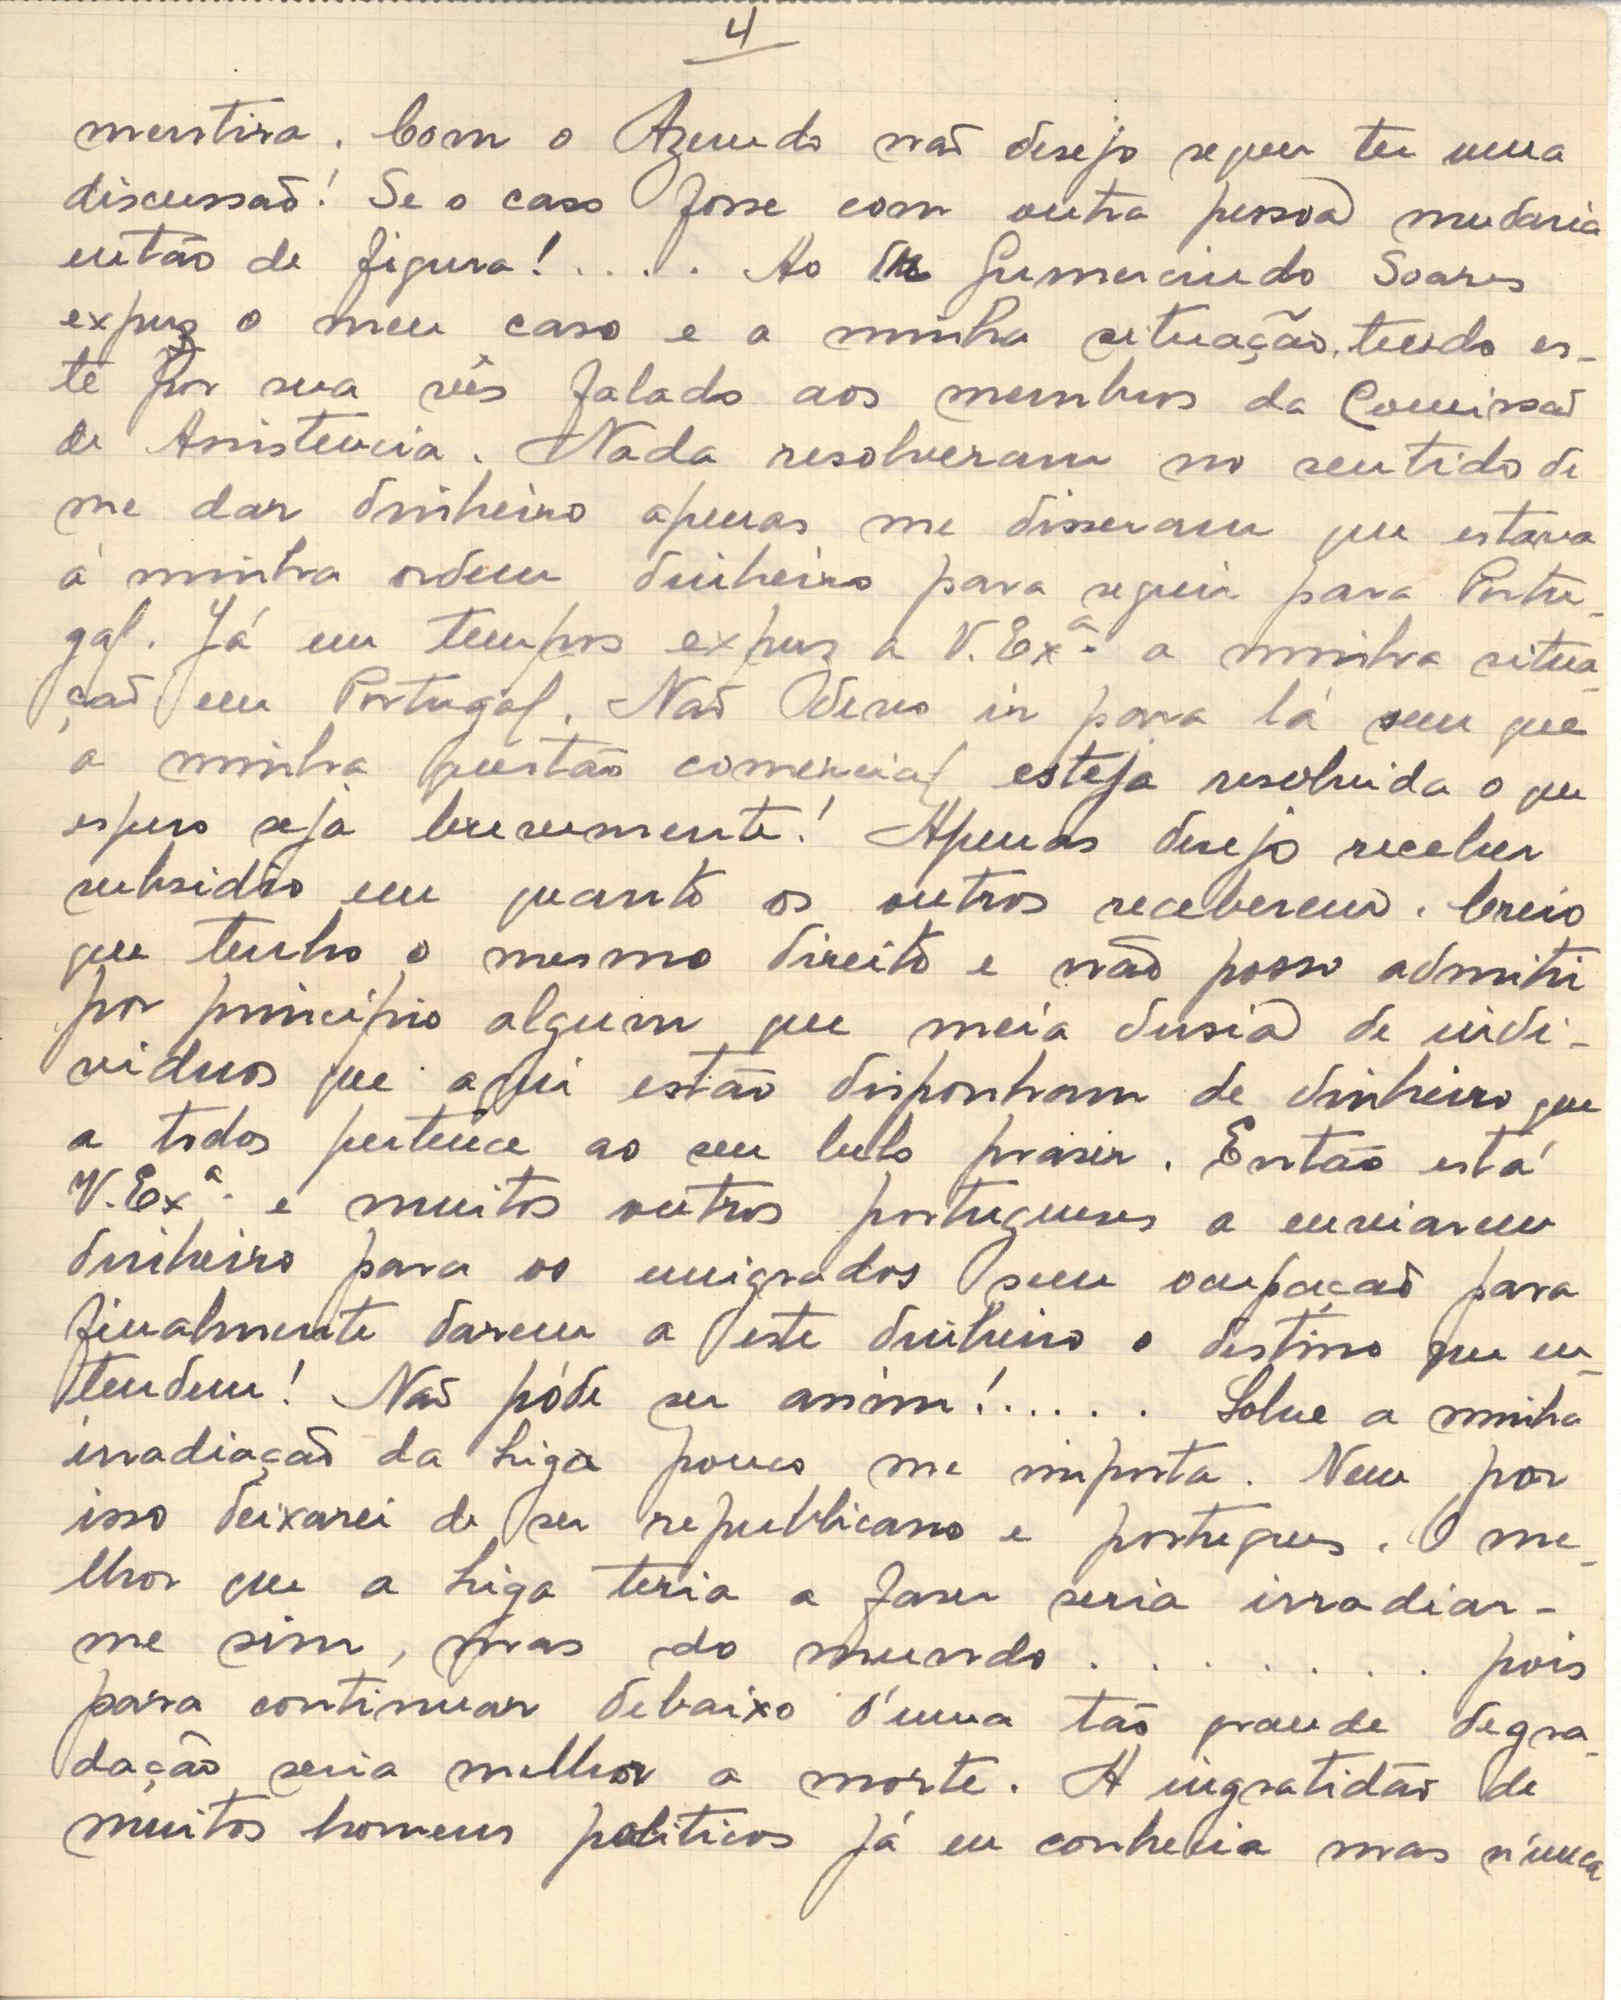 4
mentira. Com o Azevedo naõ desejo sequer ter uma
discussaõ! Se o caso fosse com outra pessoa mudaria
então de figura!.... Ao Dr Gumercindo Soares
expuz o meu caso e a minha situação, tendo es-
te por sua vês falado aos membros da Comissaõ
de Assistencia. Nada resolveram no sentido de
me dar dinheiro apenas me disseram que estava
á minha ordem dinheiro para seguir para Portu-
gal. Já em tempos expuz a V. Exª. a minha situa-
çaõ em Portugal. Naõ devo ir para lá sem que
a minha questão comercial esteja resolvida o que
espero seja brevemente! Apenas desejo receber
subsidio em quanto os outros receberem. Creio
que tenho o mesmo direito e não posso admitir
por principio algum que meia dusia de indi-
viduos que aqui estão disponham de dinheiro que
a todos pertence ao seu belo praser. Então está
V. Exª. e muitos outros portugueses a enviarem
dinheiro para os emigrados sem ocupaçaõ para
finalmente darem a este dinheiro o destino que en-
tendem! Naõ póde ser assim!..... Sobre a minha
irradiaçaõ da Liga pouco me importa. Nem por
isso deixarei de ser republicano e portugues. O me-
lhor que a Liga teria a faser seria irradiar-
me sim, mas do mundo........ pois
para continuar debaixo d'uma taõ grande degra-
dação seria melhor a morte. A ingratidão de
muitos homens politicos já eu conhecia mas nunca